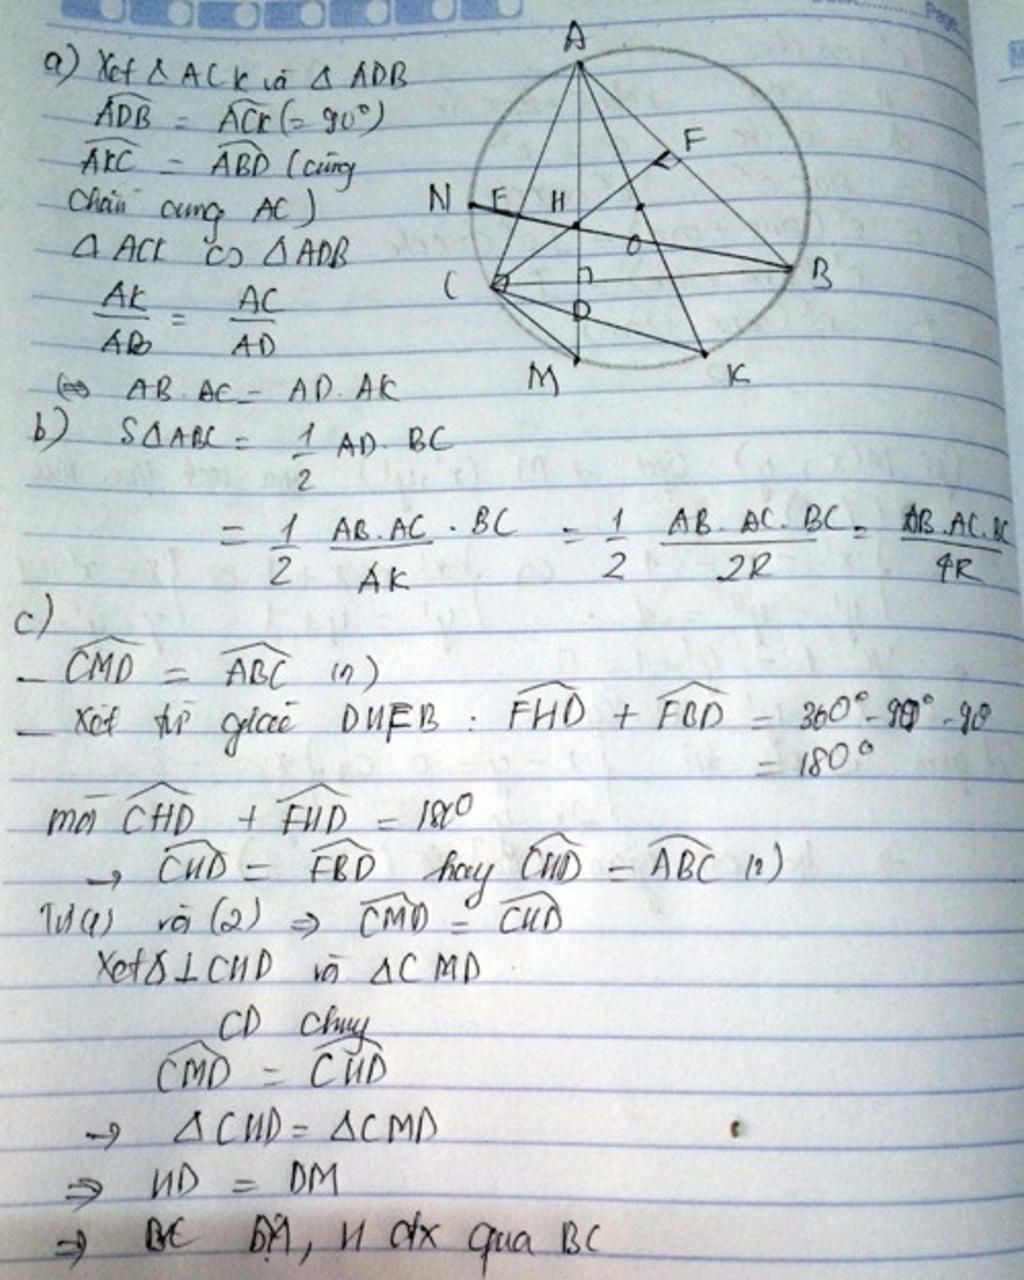 Page
a) Xét Δ ACK và Δ ADB
ADB = ACK (= 90°)
AKC = ABD (cùng
chắn cung AC)
Δ ACK ∽ Δ ADB
AK/AB = AC/AD
⇔ AB.AC = AD.AK
b) SΔABC = 1/2 AD.BC
= 1/2 AB.AC/AK . BC = 1/2 AB.AC.BC/2R = AB.AC.BC/4R
c)
- CMD = ABC (1)
- Xét tứ giác DHFB : FHD + FBD = 360° - 90° - 90
= 180°
mà CHD + FHD = 180
→ CHD = FBD hay CHD = ABC (2)
Từ (1) và (2) ⇒ CMD = CHD
Xét Δ ⊥ CHD và ΔCMD
CD chung
CMD = CHD
→ ΔCHD = ΔCMD
⇒ HD = DM
⇒ H đx qua BC
A
F
N E H
O
C B
D
M K